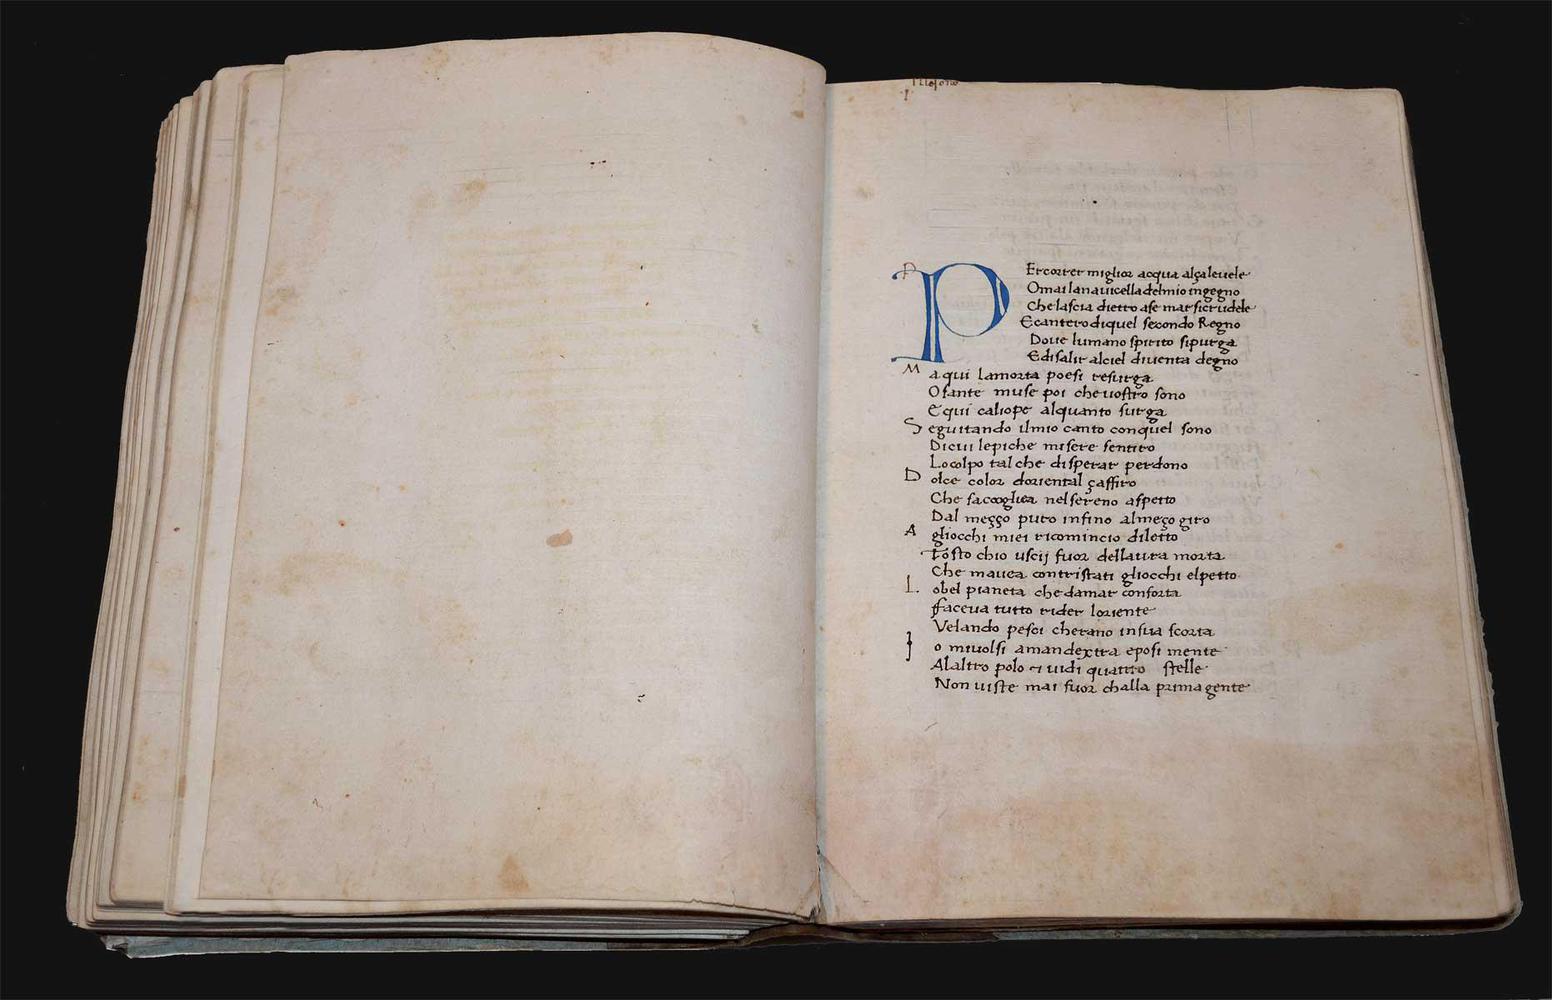 PEr correr miglior acqua alça le uele
Omai la nauicella del mio ingegno
Che lascia dietro a se mar si crudele
E cantero di quel secondo Regno
Doue lumano spirito si purga
E di salir al ciel diuenta degno
Ma qui la morta poesi resurga
O sante muse poi che uostro sono
E qui caliope alquanto surga
Seguitando il mio canto con quel sono
Di cui le piche misere sentiro
Lo colpo tal che disperar perdono
Dolce color doriental çaffiro
Che sacoglieа nel sereno aspetto
Dal meçço puro infino al meço giro
A gliocchi miei ricomincio diletto
Tosto chio uscij fuor dellaura morta
Che mauea contristati gliocchi elpetto
Lo bel pianeta che damar conforta
Faceua tutto rider loriente
Velando pesci cherano in sua scorta
Io mi uolsi a man dextra e posi mente
Alaltro polo et uidi quattro stelle
Non uiste mai fuor challa prima gente